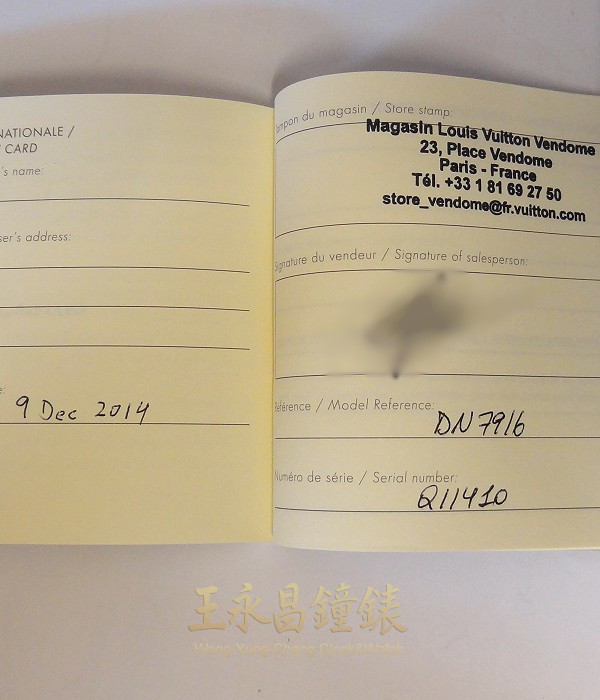 NATIONALE /
CARD
's name:
ser's address:
9 Dec 2014
Tampon du magasin / Store stamp:
Magasin Louis Vuitton Vendome
23, Place Vendome
Paris - France
Tél. +33 1 81 69 27 50
store_vendome@fr.vuitton.com
Signature du vendeur / Signature of salesperson:
Référence / Model Reference:
DN7916
Numéro de série / Serial number:
Q11410
王永昌鐘錶
Wang Yung Chang Clock&Watch